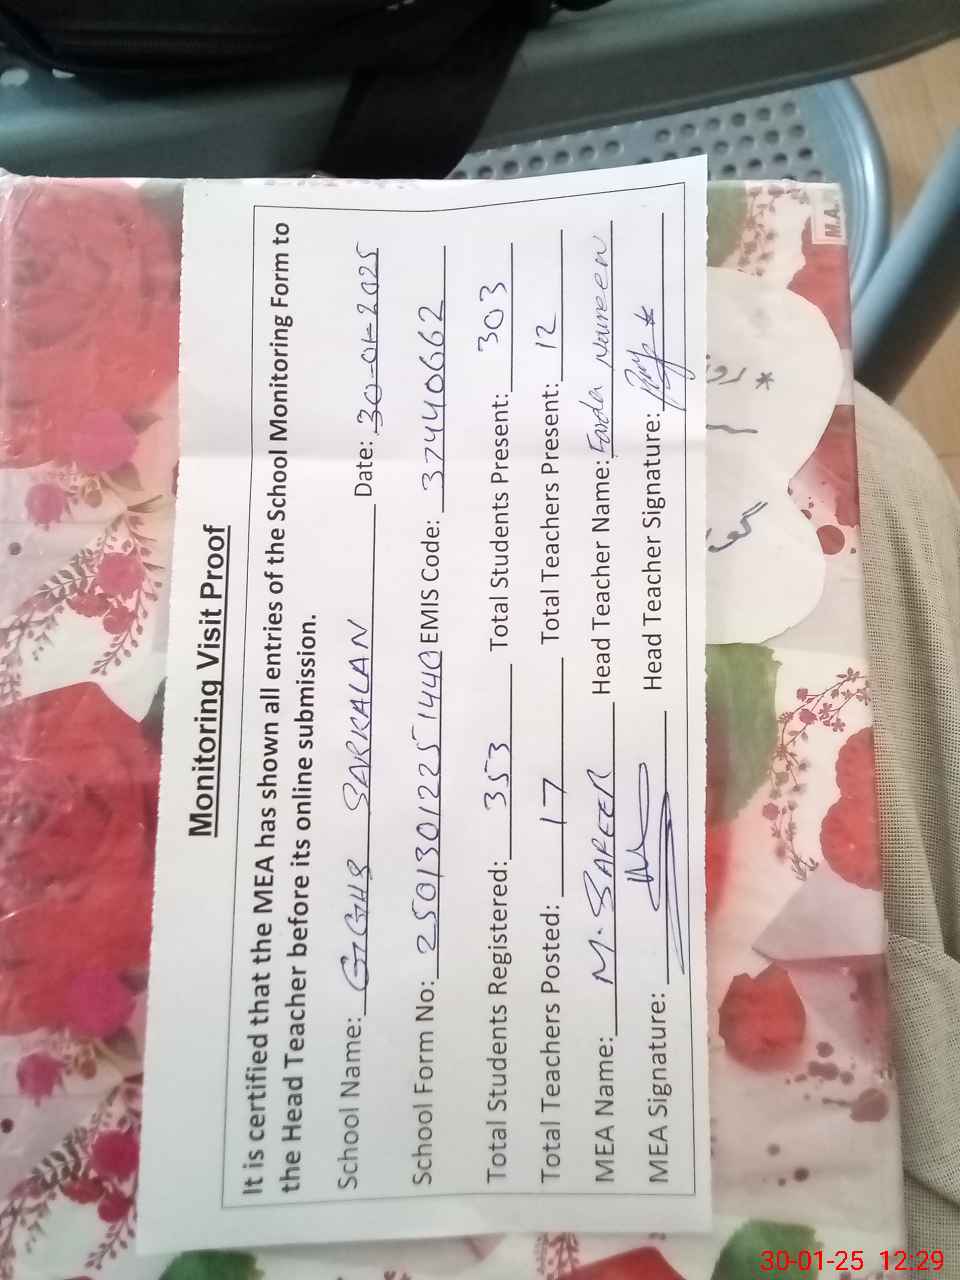 Monitoring Visit Proof
It is certified that the MEA has shown all entries of the School Monitoring Form to
the Head Teacher before its online submission.
School Name: GGHS SARKALAN Date: 30-01-2025
School Form No: 25013012251440 EMIS Code: 37440662
Total Students Registered: 353 Total Students Present: 303
Total Teachers Posted: 17 Total Teachers Present: 12
MEA Name: M. SAFEER Head Teacher Name: Farda Noureen
MEA Signature: Head Teacher Signature:
M.A.
* روز
گو
30-01-25 12:29